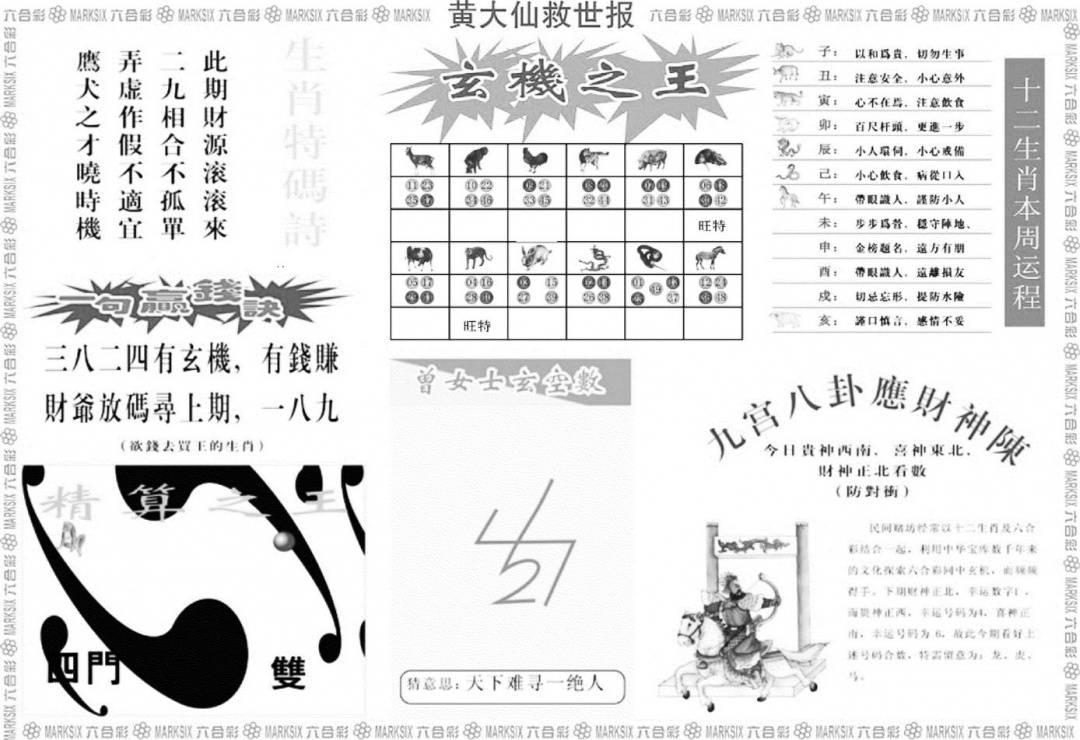 黄大仙救世报
六合彩 MARKSIX 六合彩 MARKSIX 六合彩 MARKSIX 六合彩
生肖特碼詩
此期財源滚滚來
二九相合不孤單
弄虚作假不適宜
鷹犬之才曉時機
一句贏錢訣
三八二四有玄機，有錢賺
財爺放碼尋上期，一八九
（欲錢去買王的生肖）
精算之王
四門
雙
玄機之王
11 23
10 22 34 46
21 33 45
32 44
31 43
42
旺特
05 17
04 16 28
15 27 39
26 38
37
12 24
旺特
曾女士玄空數
猜意思：天下难寻一绝人
十二生肖本周运程
子：以和爲貴，切勿生事
丑：注意安全，小心意外
寅：心不在焉，注意飲食
卯：百尺杆頭，更進一步
辰：小人環伺，小心戒備
己：小心飲食，病從口入
午：帶眼識人，謹防小人
未：步步爲營，穩守陣地、
申：金榜题名，遠方有朋
酉：帶眼識人，遠離損友
戍：切忌忘形，提防水險
亥：謹口慎言，感情不妥
九宫八卦應財神陳
今日貴神西南，喜神東北，
財神正北看數
（防對衝）
民间赌坊经常以十二生肖及六合
彩结合一起，利用中华宝库数千年来
的文化探索六合彩同中玄机，而频频
得手。下期财神正北，幸运数字1，
海贵神正西，幸运号码为4，喜神正
南，幸运号码为 6，故此今期看好上
述号码合数，特需留意为：龙、虎、
马。